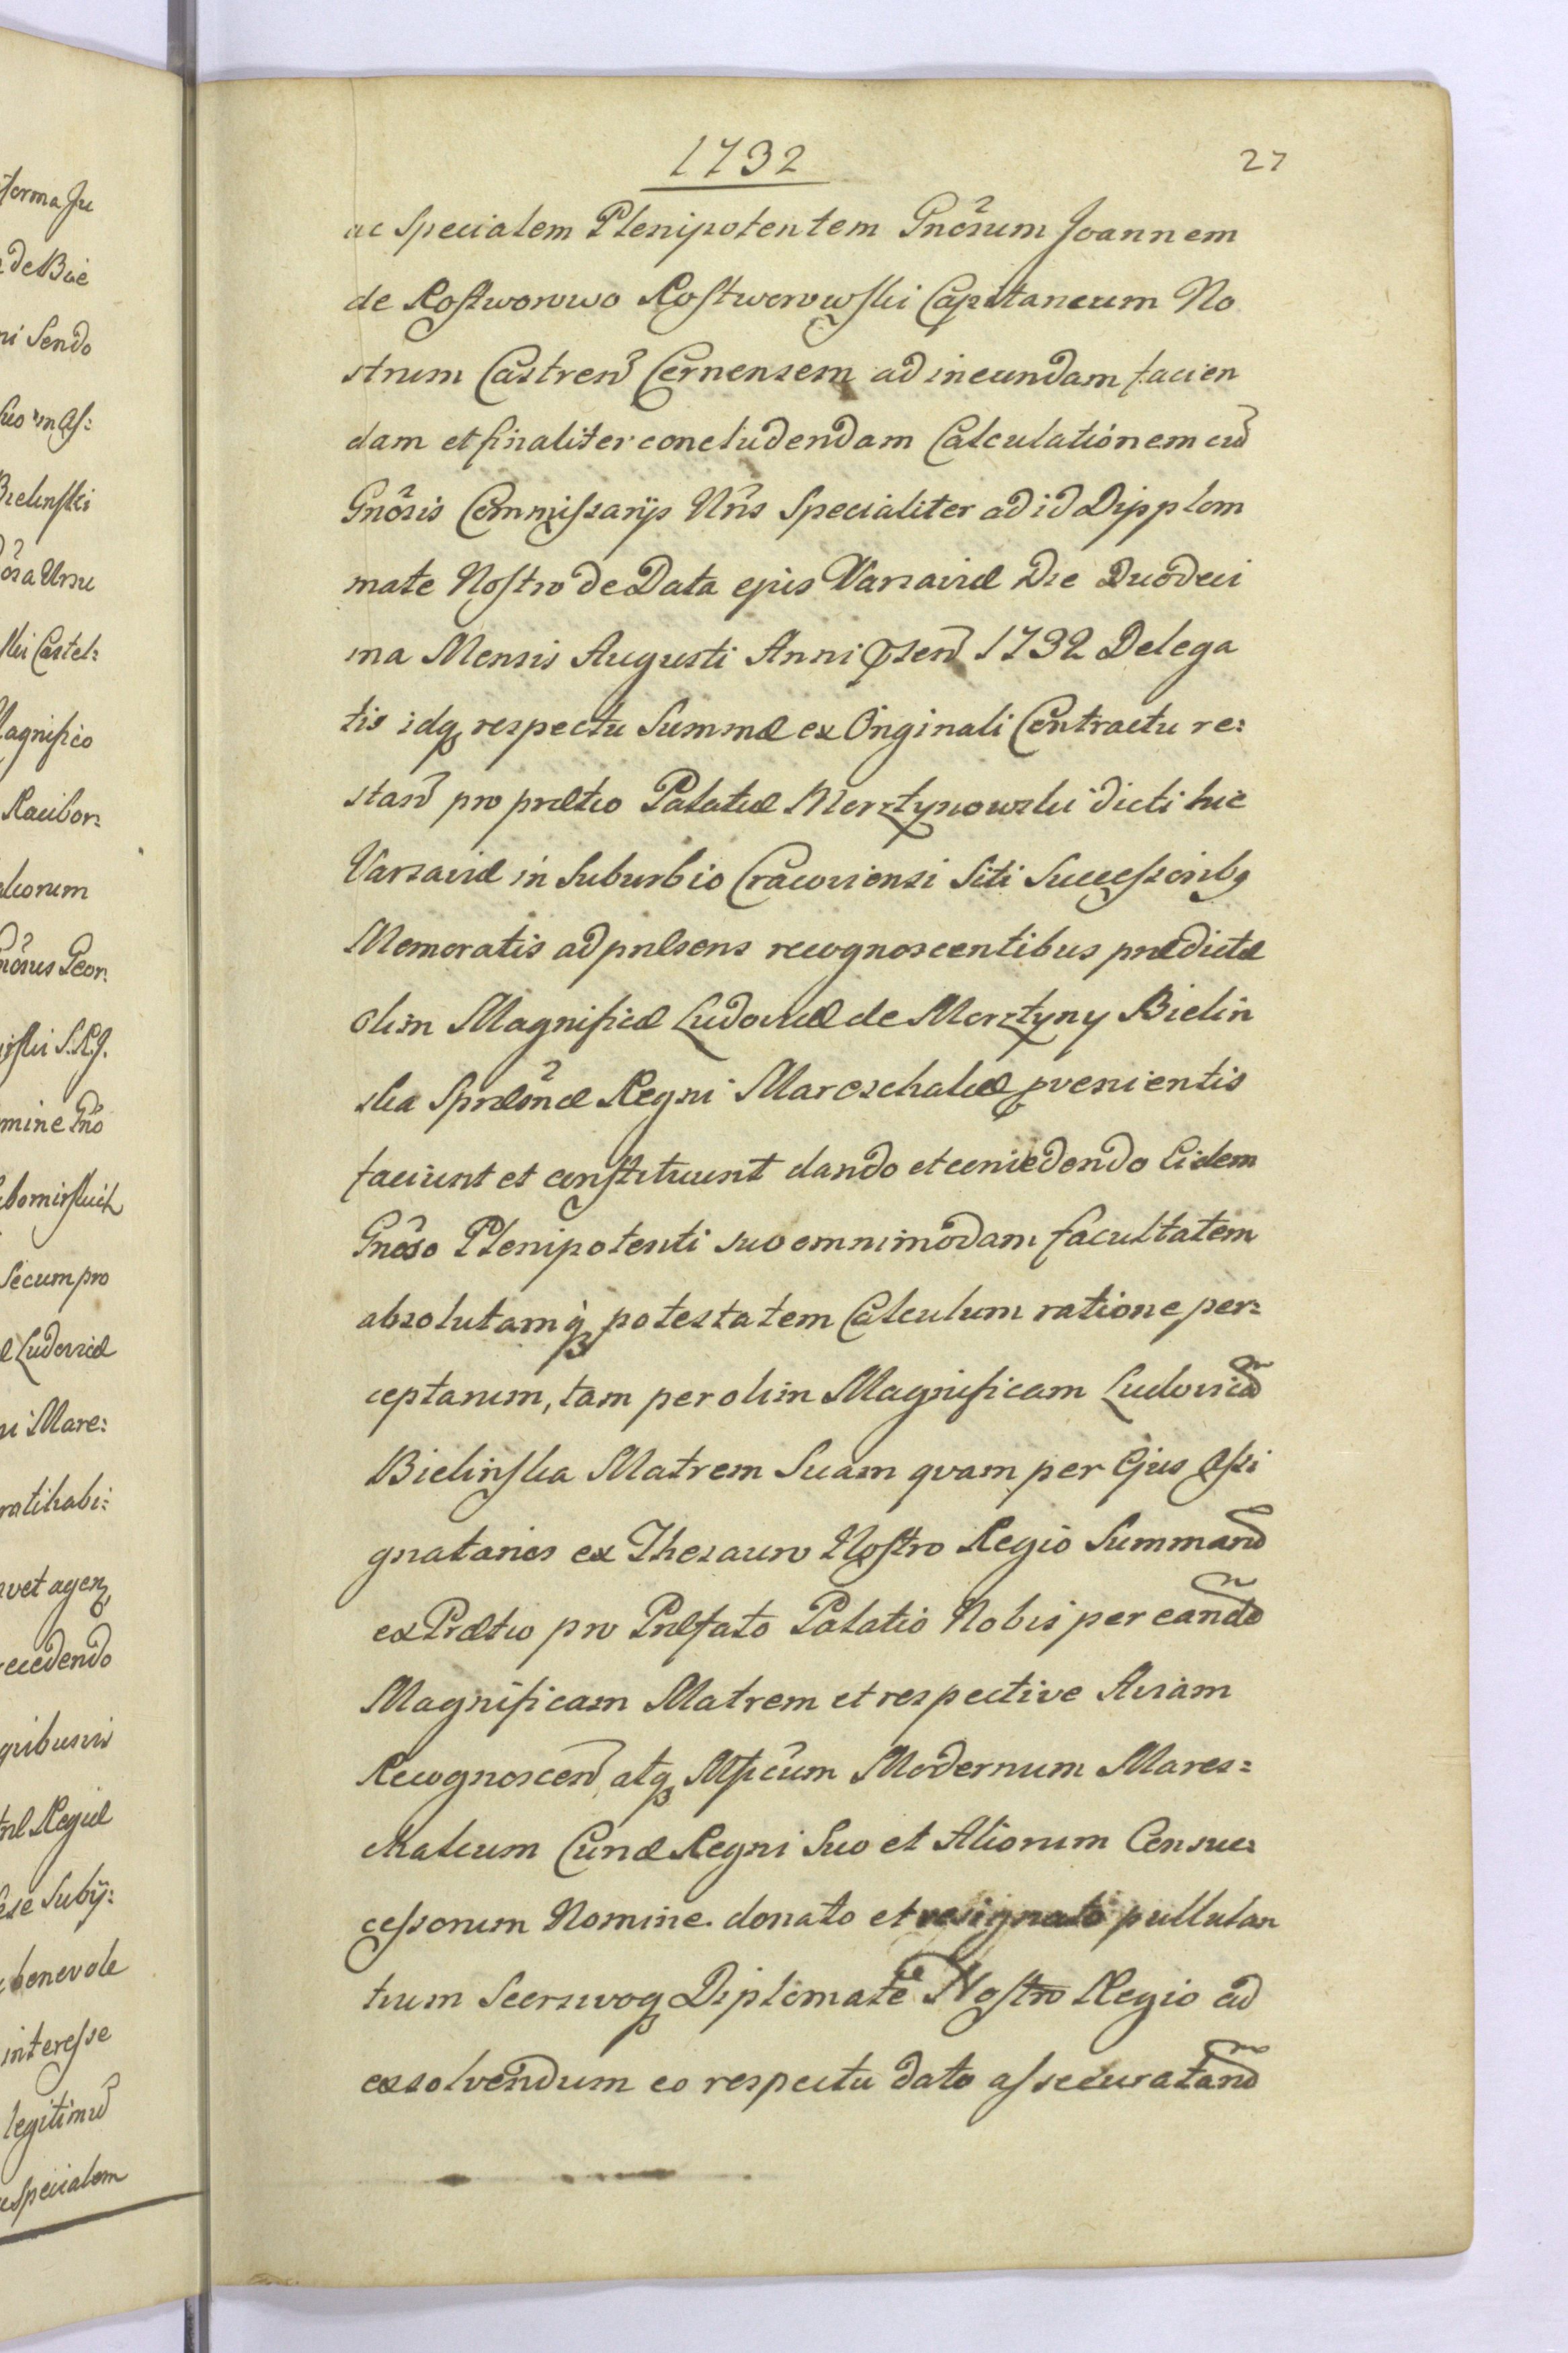 1732
27
ac Specialem Plenipotentem Gnõsum Joannem
de Rostworowo Rostworowski Capitaneum No
strum Castren̄ Cernensem ad ineundam facien
dam et finaliter concludendam Calculationem cū
Gnõsis Commissarijs Nr̃is Specialiter ad id Dipplom
mate Nostro de Data ejus Varsaviæ Die Duodeci
ma Mensis Augusti Anni p̄sen̄ 1732 Delega
tis idq̃ respectu Summæ ex Originali Contractu re:
stan̄ pro prætio Palatiæ Morztynowski dicti hic
Varsaviæ in Suburbio Cracoviensi Siti Successoribq
Memoratis ad præsens recognoscentibus prædictæ
olim Magnificæ Ludovicæ de Morztyny Bielin
ska Supræmæ Regni Mareschalcæ pvenientis
faciunt et constituunt dando et concedendo Eidem
Gnõso Plenipotenti suo omnimodam facultatem
absolutamq̃ potestatem Calculum ratione per:
ceptarum, tam per olim Magnificam Ludovicā
Bielinska Matrem Suam qvam per Ejus Assi
gnatarios ex Thesauro Nostro Regio Summarū
ex Prætio pro Præfato Palatio Nobis per eandē
Magnificam Matrem et respective Aviam
Recognoscen̄ atq̃ Mficum Modernum Mares:
chalcum Curiæ Regni Suo et Aliorum Consuc:
cessorum Nomine donato et resignato pullulan
tium Seorsivoq̃ Diplomate Nostro Regio ad
exsolvendum eo respectu dato assecuratarū
forma Ju
de Bie
ni Sendo
suo in As:
Bielinski
Ursu
ski Castel:
Magnifico
Racibor:
liorum
Geor:
S.R.J.
mine Gnõ
Secum pro
æ Ludovicæ
ni Mare:
ratihabi:
vet agen
recedendo
qvibusvis
Regiæ
ese Subij:
benevole
interesse
legitimū
specialem